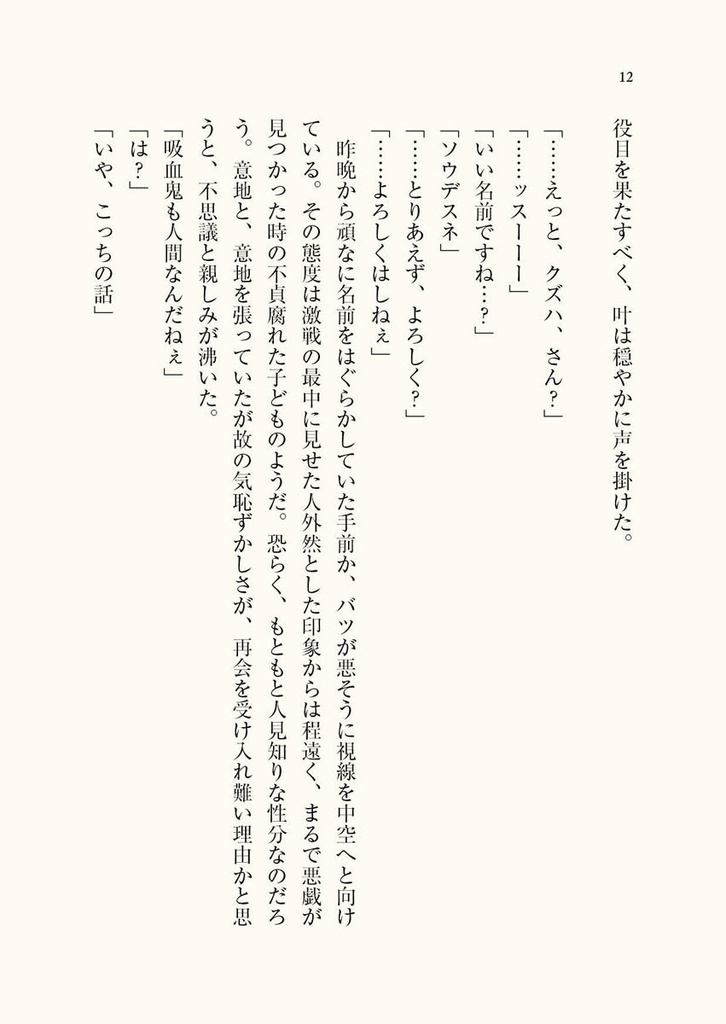 12
役目を果たすべく、叶は穏やかに声を掛けた。
「……えっと、クズハ、さん?」
「……ッスーーー」
「いい名前ですね…?」
「ソウデスネ」
「……とりあえず、よろしく?」
「……よろしくはしねぇ」
昨晩から頑なに名前をはぐらかしていた手前か、バツが悪そうに視線を中空へと向け
ている。その態度は激戦の最中に見せた人外然とした印象からは程遠く、まるで悪戯が
見つかった時の不貞腐れた子どものようだ。恐らく、もともと人見知りな性分なのだろ
う。意地と、意地を張っていたが故の気恥ずかしさが、再会を受け入れ難い理由かと思
うと、不思議と親しみが沸いた。
「吸血鬼も人間なんだねぇ」
「は?」
「いや、こっちの話」